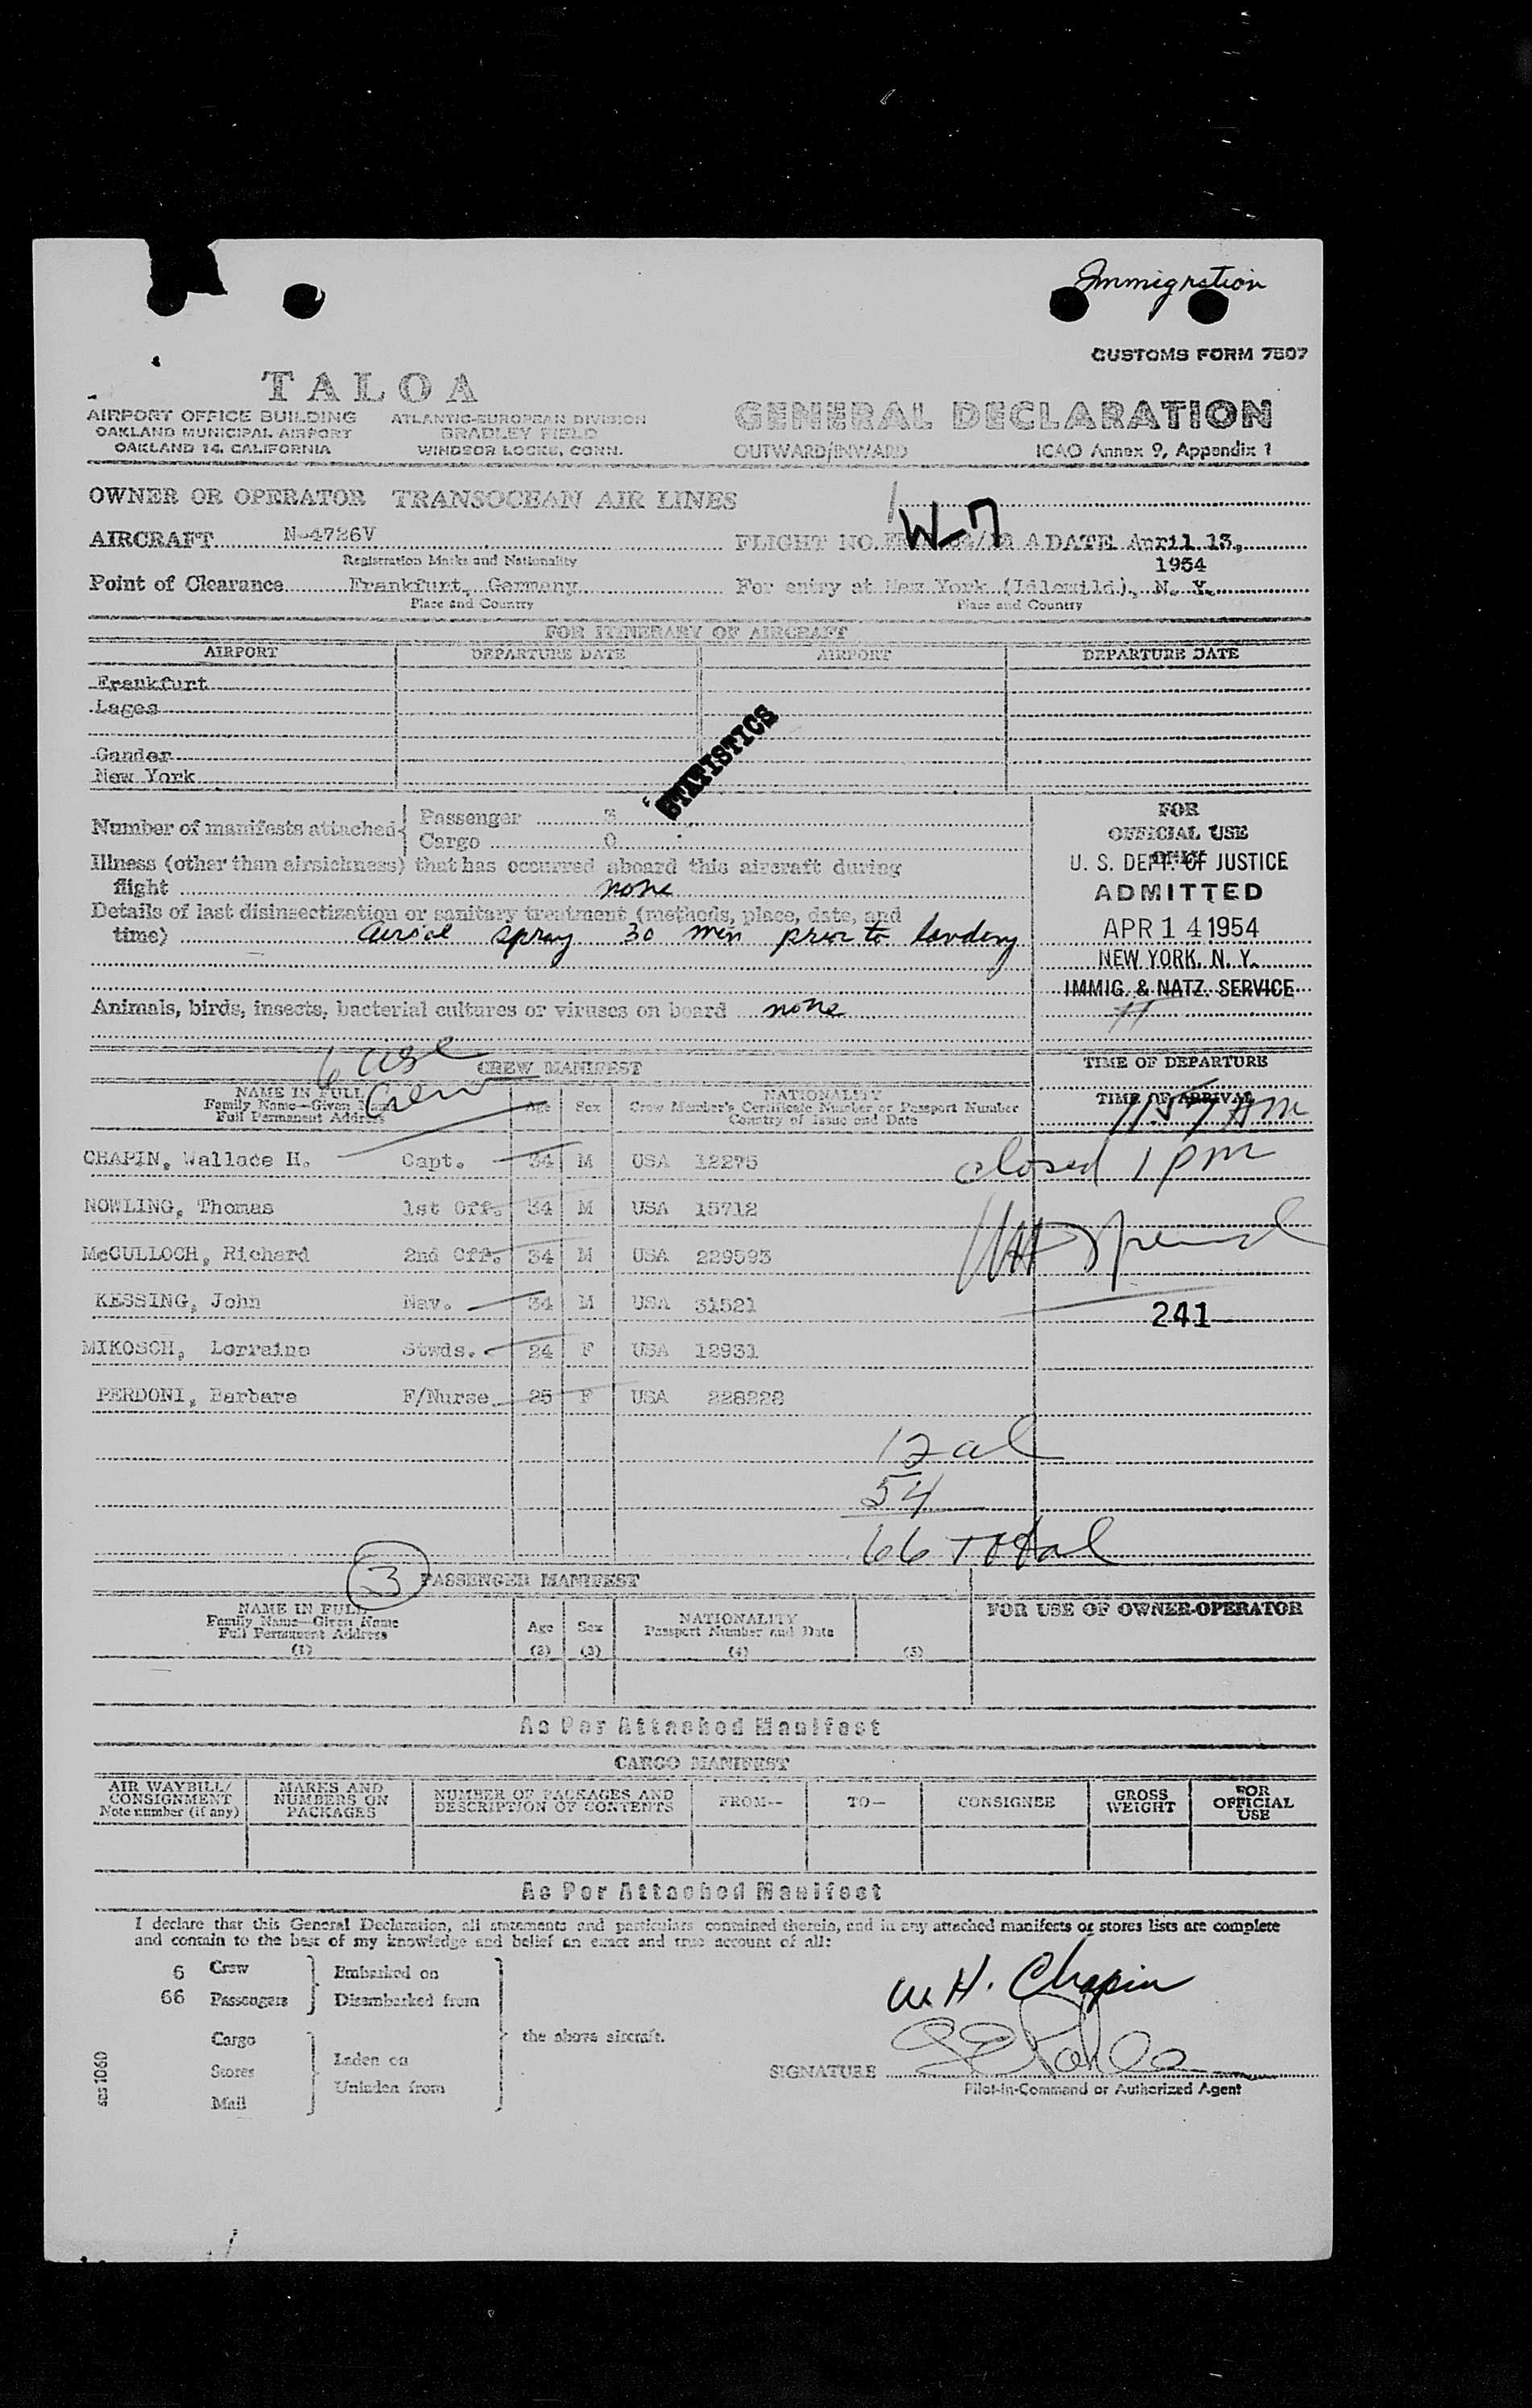 Immigration
CUSTOMS FORM 7507
TALOA
AIRPORT OFFICE BUILDING
OAKLAND MUNICIPAL AIRPORT
OAKLAND 14, CALIFORNIA
ATLANTIC-EUROPEAN DIVISION
BRADLEY FIELD
WINDSOR LOCKS, CONN.
GENERAL DECLARATION
OUTWARD/INWARD ICAO Annex 9, Appendix 1
OWNER OR OPERATOR TRANSOCEAN AIR LINES
W-7
AIRCRAFT N-4726V FLIGHT NO. A DATE April 13,
Registration Marks and Nationality 1954
Point of Clearance Frankfurt, Germany For entry at New York (Idlewild), N. Y.
Place and Country Place and Country
FOR ITINERARY OF AIRCRAFT
AIRPORT DEPARTURE DATE AIRPORT DEPARTURE DATE
Frankfurt
Lages
Gander
New York
STATISTICS
Number of manifests attached
Passenger 3
Cargo 0
Illness (other than airsickness) that has occurred aboard this aircraft during
flight none
Details of last disinsectization or sanitary treatment (methods, place, date, and
time) aerosol spray 30 min prior to landing
Animals, birds, insects, bacterial cultures or viruses on board none
FOR
OFFICIAL USE
ONLY
U. S. DEPT. OF JUSTICE
ADMITTED
APR 14 1954
NEW YORK, N. Y.
IMMIG. & NATZ. SERVICE
TIME OF DEPARTURE
TIME OF ARRIVAL
1157 AM
closed 1 pm
241
6 usc
Crew
CREW MANIFEST
NAME IN FULL
Family Name—Given Name
Full Permanent Address
Age Sex
NATIONALITY
Crew Member's Certificate Number or Passport Number
Country of Issue and Date
CHAPIN, Wallace H. Capt. 34 M USA 12275
NOWLING, Thomas 1st Off. 34 M USA 15712
McCULLOCH, Richard 2nd Off. 34 M USA 229593
KESSING, John Nav. 34 M USA 31521
MIKOSCH, Lorraine Stwds. 24 F USA 12931
PERDONI, Barbara F/Nurse 25 F USA 228228
12 al
54
66 Total
3
PASSENGER MANIFEST
NAME IN FULL
Family Name—Given Name
Full Permanent Address
(1)
Age
(2)
Sex
(3)
NATIONALITY
Passport Number and Date
(4)
(5)
FOR USE OF OWNER-OPERATOR
As Per Attached Manifest
CARGO MANIFEST
AIR WAYBILL/
CONSIGNMENT
Note number (if any)
MARKS AND
NUMBERS ON
PACKAGES
NUMBER OF PACKAGES AND
DESCRIPTION OF CONTENTS
FROM--
TO—
CONSIGNEE
GROSS
WEIGHT
FOR
OFFICIAL
USE
As Per Attached Manifest
I declare that this General Declaration, all statements and particulars contained therein, and in any attached manifests or stores lists are complete
and contain to the best of my knowledge and belief an exact and true account of all:
6 Crew Embarked on
66 Passengers Disembarked from
Cargo
Stores Laden on
Mail Unladen from
the above aircraft.
W. H. Chapin
SIGNATURE
Pilot-in-Command or Authorized Agent